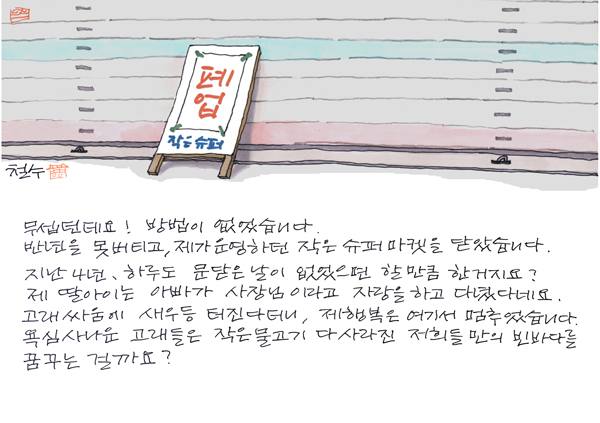 폐
업
작은 슈퍼
철수
무섭던데요! 방법이 없었습니다.
반년을 못버티고, 제가운영하던 작은 슈퍼마켓을 닫았습니다.
지난 4년, 하루도 문닫은날이 없었으면 할만큼 한거지요?
제 딸아이는 아빠가 사장님이라고 자랑을하고 다녔다네요.
고래싸움에 새우등 터진다더니, 제행복은 여기서 멈추었습니다.
욕심사나운 고래들은 작은물고기 다사라진 저희들만의 빈바다를
꿈꾸는 걸까요?